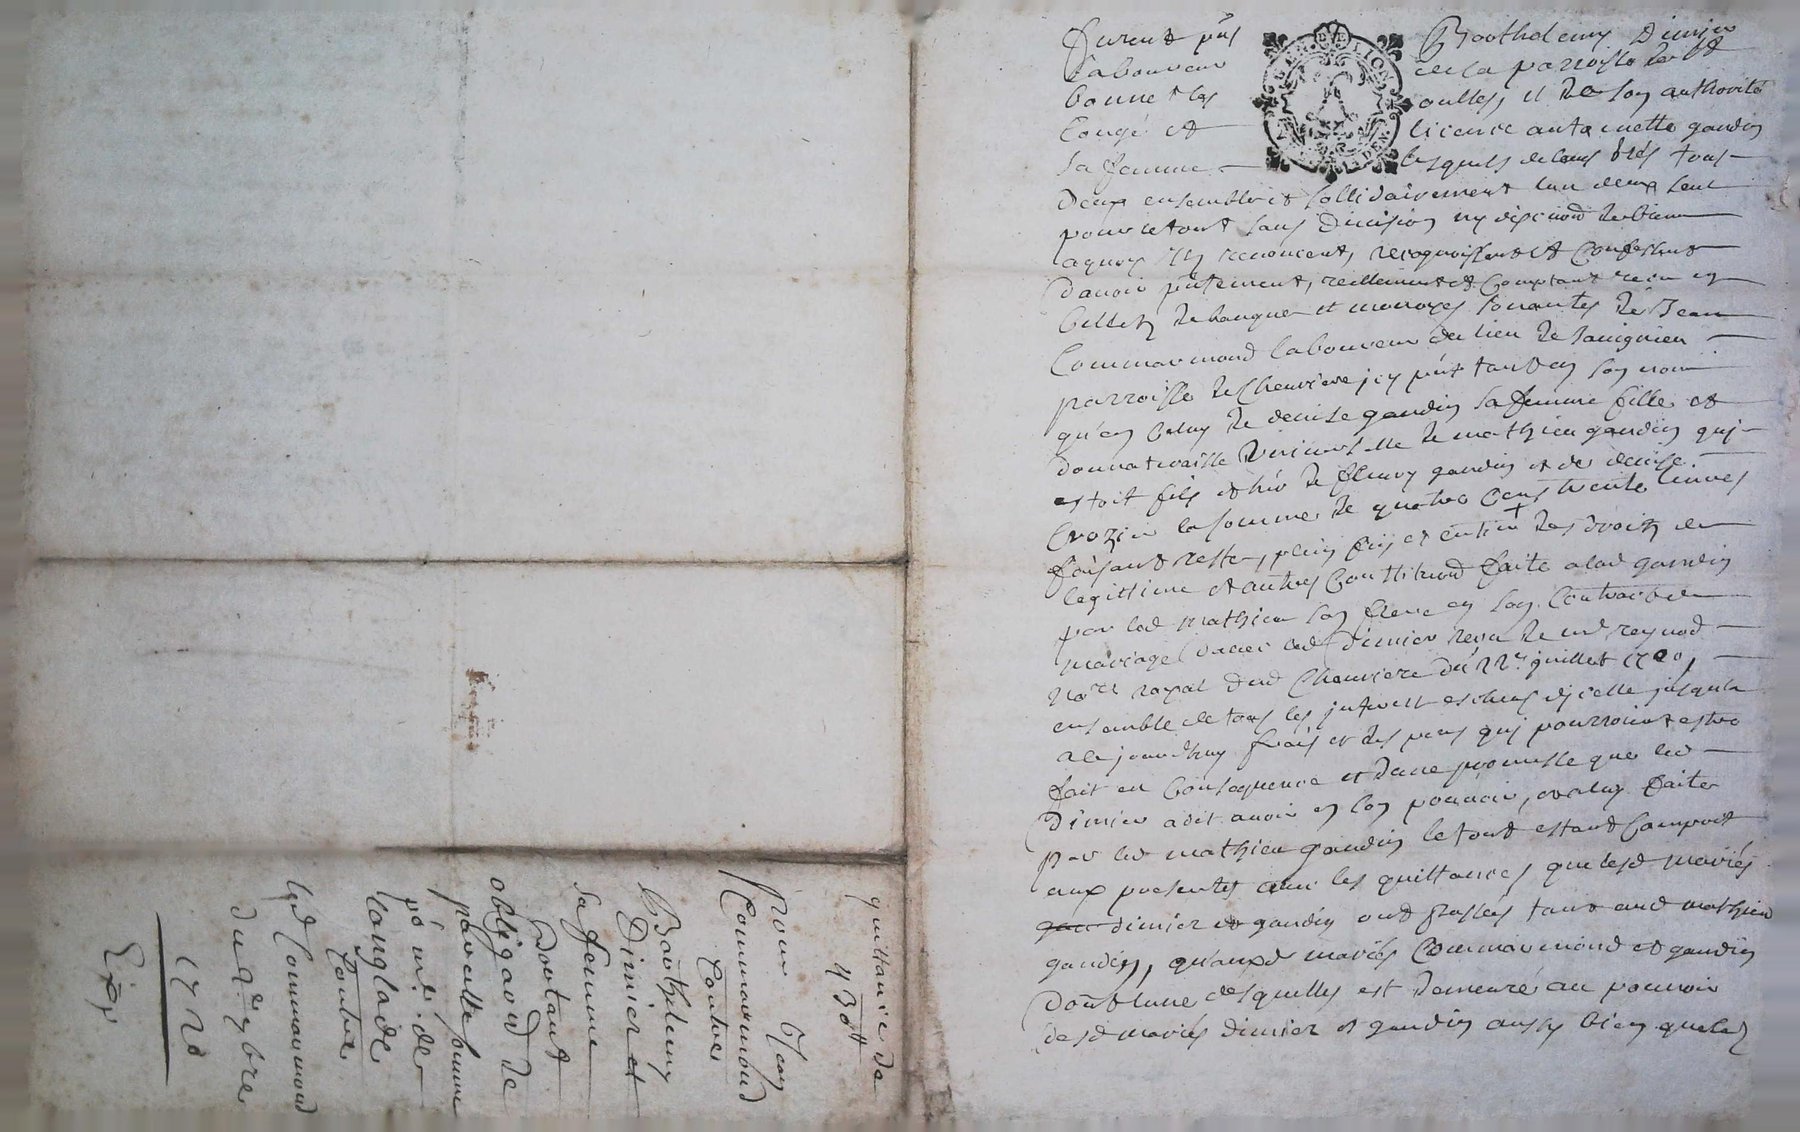 furent pñs Barthelemy Dimier
Laboureur de la parroisse de St
bonne et les oulles, et de son authorité
Congé et licence antoinette gaudin
sa femme lesquels de leurs grés tous
deux ensemble et sollidairement l'un deux seul
pour le tout sans division ny discution de biens
a quoy ils renoncent, recognoissent et confessent
d'avoir pñtement, reellement et comptant receu en
billets de banque et monoyes sonantes de Jean
Commarmond laboureur du lieu de savignieu
parroisse de Chevriere jcy pñt tant en son nom
qu'en celuy de denise gaudin sa femme fille et
donnataire universelle de mathieu gaudin qui
estoit fils et hér de fleury gaudin et de denise
Crozier la somme de quatre cens trente livres
faisant reste, plein et entier des droits de
legittime et autres Constitués faite a lad gaudin
par led mathieu son frere en son Contract de
mariage avec led dimier receu de me reynod
nore royal dud Chevriere du 22e juillet
ensemble de tous les interest eschus d'icelle jusques
a ce jourdhuy frais et despens qui pourroient estre
fait en Consequence et d'une promesse que led
dimier a dit avoir en son pouvoir, a luy faite
par led mathieu gaudin le tout estant Comprit
aux presentes avec les quittances que lesd mariés
dimier et gaudin ont passées tant aud mathieu
gaudin, qu'auxd mariés Commarmond et gaudin
dont l'une desquelles est demeurée au pouvoir
desd mariés dimier et gaudin aussy bien que lad
quittance de
430tt
Pour Jean
Commarmond
Contre
Barthelemy
Dimier et
sa femme
Portant
obligaõn de
pareille somme
po me de
Langlade
Contre
led Commarmond
du 9bre
1720
Exp